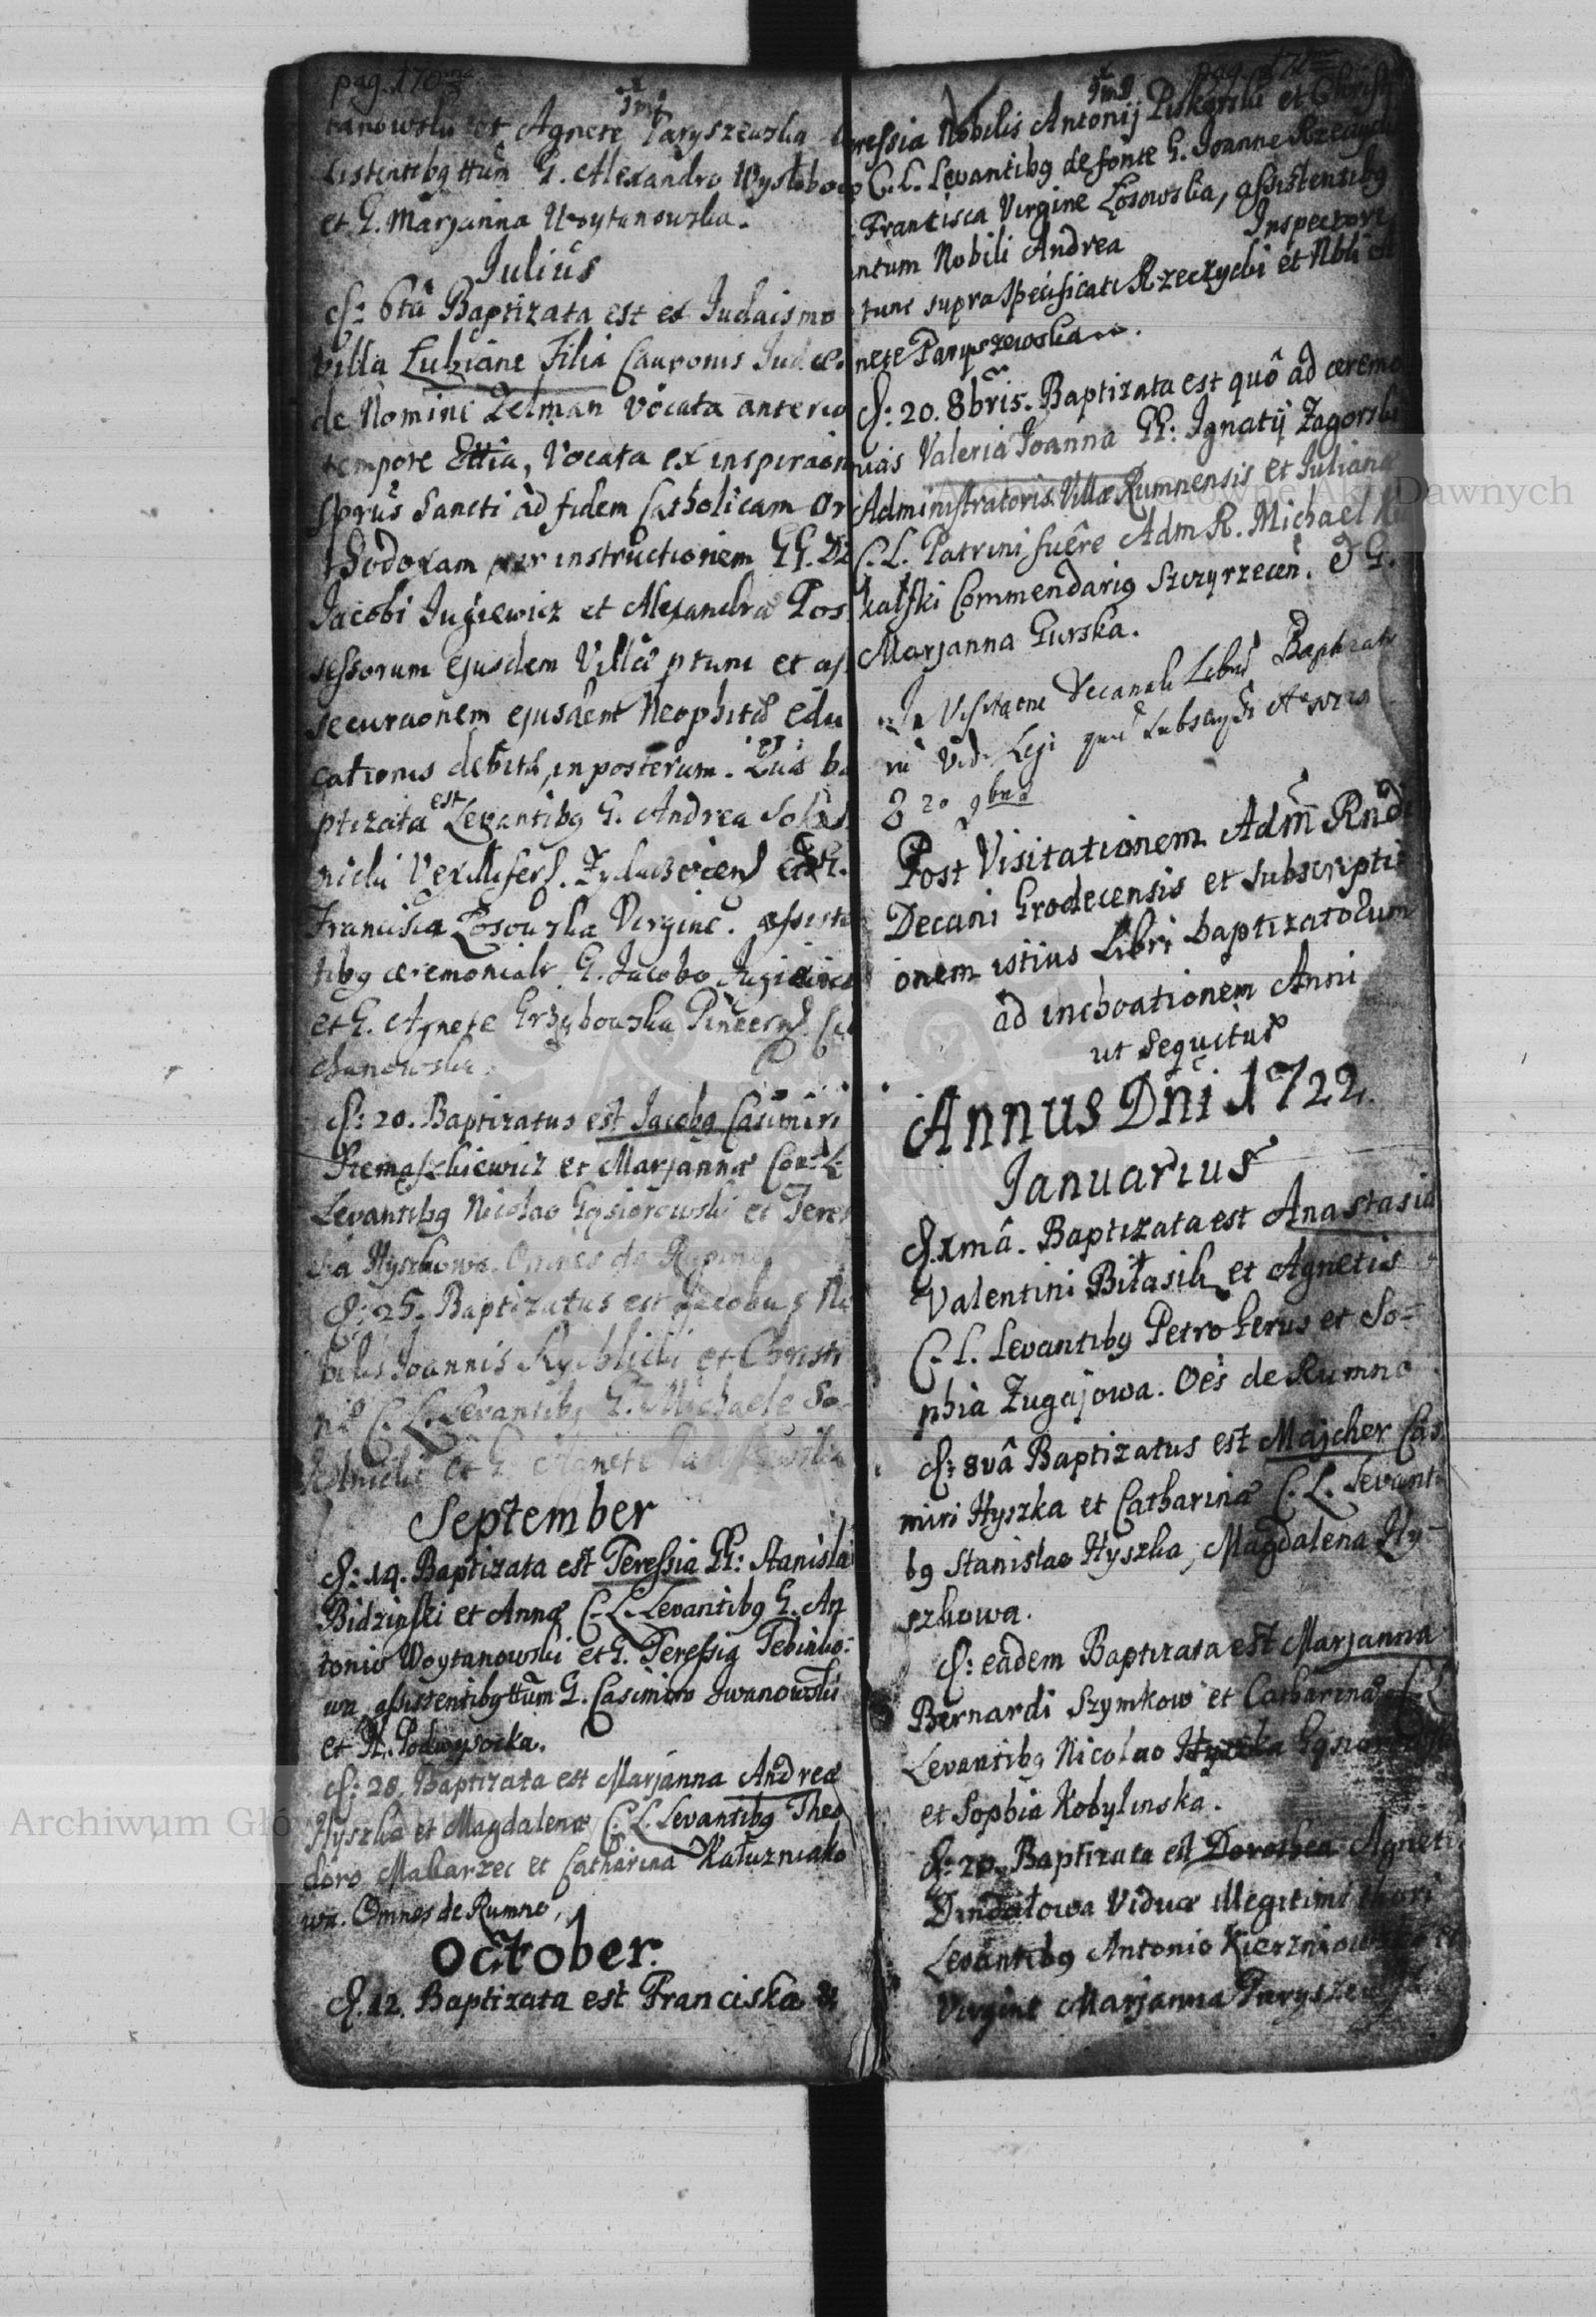 pag. 170
tanowski et Agnete Paryszewska
sistentibq ttum G. Alexandro Wyslobock
et G. Marjanna Woytanowska.
Julius
d: 6ta Baptizata est ex Judaismo
Villa Lubiane Filia Cauponis Jud.
de Nomine Zelman Vocata anterio
tempore Ettia, Vocata ex inspiraon
Sprus Sancti ad fidem Catholicam Or
thodoxam per instructionem GG. DD
Jacobi Jugiewicz et Alexandra Pos
sessorum ejusdem Villæ ptunc et as
securaonem ejusdem Neophitæ edu
cationis debitæ, in posterum. Quæ ba
ptizata est Levantibq G. Andrea Sokol
nicki Vexillifero Zydaczoviens et G.
Francisca Łosowska Virgine. assiste
tibq ceremonialr G. Jacobo Jugiewicz
et G. Agnete Grzybowska Pincern. Cie
chanowska.
d: 20. Baptizatus est Jacobq Casimiri
Przemaszkiewicz et Marjannæ Con: L:
Levantibq Nicolao Gąsiorowski et Teres
sia Hyszkowa. Omnes de Rumno
d: 25. Baptizatus est Jacobus No
bilis Joannis Rychlicki et Christi
næ C. L. Levantibq G. Michaele So
kolnicki et G. Agnete Paryszewska
September
d: 14. Baptizata est Teressia GG: Stanislai
Bidzinski et Annæ C. L. Levantibq G. An
tonio Woytanowski et G. Teressia Tebinko:
wa assistentibq ttum G. Casimiro Iwanowski
et N. Podwysocka.
d: 28. Baptizata est Marjanna Andreæ
Hyszka et Magdalenæ C. L. Levantibq Theo
doro Makarzec et Catharina Kałuzniako
wa. Omnes de Rumno,
October.
d. 12. Baptizata est Franciska
pag. 171
ressia Nobilis Antonij Piskorski et Christ
C. L. Levantibq de fonte G. Joanne Rzeczycki
Francisca Virgine Łosowska, assistentibq
ntum Nobili Andrea Inspectore
tunc supra specificati Rzeczycki et Nbli A
nete Paryszewska.
d: 20. 8bris. Baptizata est quô ad ceremo
nias Valeria Joanna GG: Ignatij Zagorski
Administratoris Villæ Rumnensis et Juliana
C. L. Patrini fuêre Adm R. Michael
kalski Commendariq Szczyrzecen. & G.
Marjanna Gurska.
In Visitaone Decanali Libru Baptizato
ru Vidi Legi
20 9bris
Post Visitationem Adm Rndi
Decani Grodecensis et subscripti
onem istius Libri baptizatorum
ad inchoationem Anni
ut sequitur
Annus Dni 1722.
Januarius
d. 1mâ. Baptizata est Anastasia
Valentini Biłasik et Agnetis
C. L. Levantibq Petro Gerus et So=
phia Zugajowa. Oes de Rumno
d: 8vâ Baptizatus est Majcher Cas
miri Hyszka et Catharinæ C. L. Levant
bq Stanislao Hyszka, Magdalena Hy=
szkowa.
d: eadem Baptizata est Marjanna
Bernardi Szymkow et Catharinæ C. L.
Levantibq Nicolao Hyszka Gąsiorowski
et Sophia Kobylinska.
d: 20. Baptizata est Dorothea Agnetis
Dindałowa Viduæ illegitimi thori
Levantibq Antonio Kierzniowski et
Virgine Marjanna Paryszewska